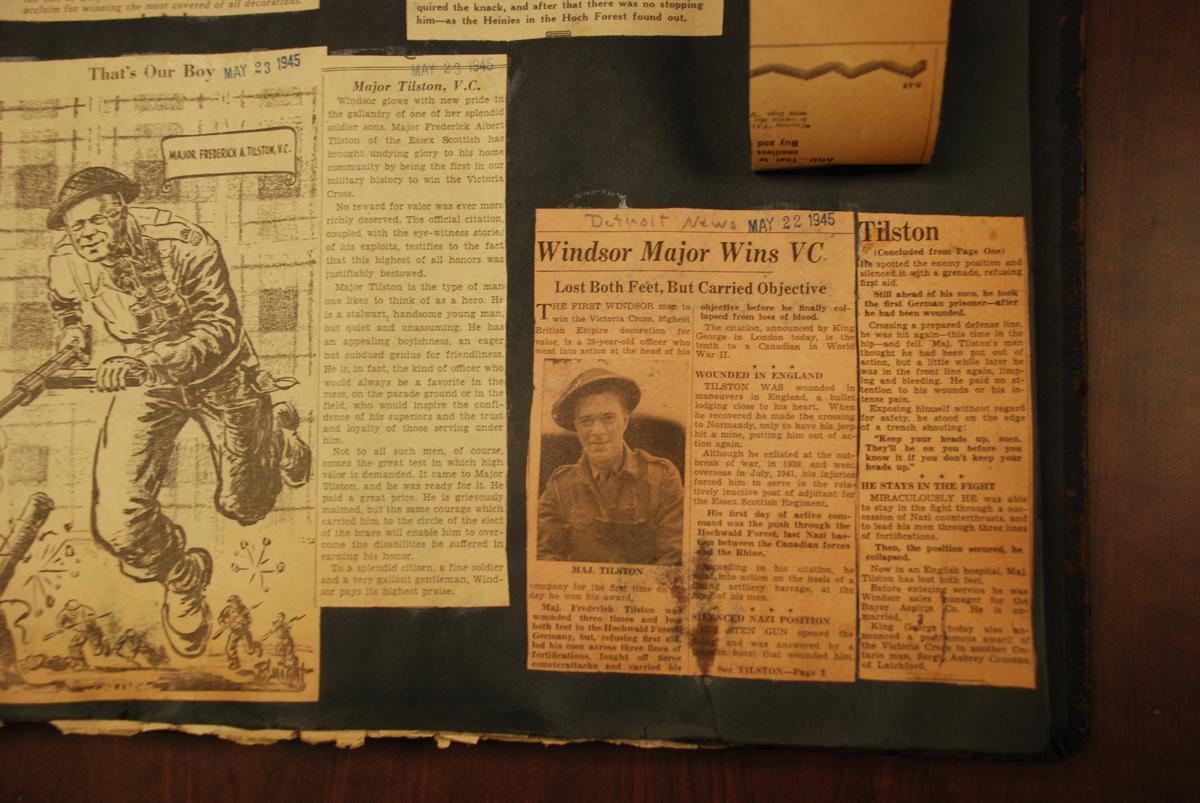 acclaim for winning the most coveted of all decorations.
quired the knack, and after that there was no stopping
him—as the Heinies in the Hoch Forest found out.
That's Our Boy MAY 23 1945
MAJOR FREDERICK A. TILSTON, V.C.
MAY 23 1945
Major Tilston, V.C.
Windsor glows with new pride in
the gallantry of one of her splendid
soldier sons. Major Frederick Albert
Tilston of the Essex Scottish has
brought undying glory to his home
community by being the first in our
military history to win the Victoria
Cross.
No reward for valor was ever more
richly deserved. The official citation,
coupled with the eye-witness stories
of his exploits, testifies to the fact
that this highest of all honors was
justifiably bestowed.
Major Tilston is the type of man
one likes to think of as a hero. He
is a stalwart, handsome young man,
but quiet and unassuming. He has
an appealing boyishness, an eager
but subdued genius for friendliness.
He is, in fact, the kind of officer who
would always be a favorite in the
mess, on the parade ground or in the
field, who would inspire the confi-
dence of his superiors and the trust
and loyalty of those serving under
him.
Not to all such men, of course,
comes the great test in which high
valor is demanded. It came to Major
Tilston, and he was ready for it. He
paid a great price. He is grievously
maimed, but the same courage which
carried him to the circle of the elect
of the brave will enable him to over-
come the disabilities he suffered in
earning his honor.
To a splendid citizen, a fine soldier
and a very gallant gentleman, Wind-
sor pays its highest praise.
AND—That to
needless
Buy and
Detroit News MAY 22 1945
Windsor Major Wins VC
Lost Both Feet, But Carried Objective
THE FIRST WINDSOR man to
win the Victoria Cross, highest
British Empire decoration for
valor, is a 39-year-old officer who
went into action at the head of his
MAJ. TILSTON
company for the first time on
day he won his award.
Maj. Frederick Tilston was
wounded three times and lost
both feet in the Hochwald Forest
Germany, but, refusing first aid,
led his men across three lines of
fortifications, fought off fierce
counterattacks and carried his
objective before he finally col-
lapsed from loss of blood.
The citation, announced by King
George in London today, is the
tenth to a Canadian in World
War II.
* * *
WOUNDED IN ENGLAND
TILSTON WAS wounded in
maneuvers in England, a bullet
lodging close to his heart. When
he recovered he made the crossing
to Normandy, only to have his jeep
hit a mine, putting him out of ac-
tion again.
Although he enlisted at the out-
break of war, in 1939, and went
overseas in July, 1941, his injuries
forced him to serve in the rela-
tively inactive post of adjutant for
the Essex Scottish Regiment.
His first day of active com-
mand was the push through the
Hochwald Forest, last Nazi bas-
tion between the Canadian forces
and the Rhine.
According to his citation, he
went into action on the heels of a
artillery barrage, at the
of his men.
* * *
SILENCED NAZI POSITION
STEN GUN opened the
and was answered by a
burst that wounded him.
See TILSTON—Page 2
Tilston
(Concluded from Page One)
He spotted the enemy position and
silenced it with a grenade, refusing
first aid.
Still ahead of his men, he took
the first German prisoner—after
he had been wounded.
Crossing a prepared defense line,
he was hit again—this time in the
hip—and fell. Maj. Tilston's men
thought he had been put out of
action, but a little while later he
was in the front line again, limp-
ing and bleeding. He paid no at-
tention to his wounds or his in-
tense pain.
Exposing himself without regard
for safety, he stood on the edge
of a trench shouting:
"Keep your heads up, men.
They'll be on you before you
know it if you don't keep your
heads up."
* * *
HE STAYS IN THE FIGHT
MIRACULOUSLY HE was able
to stay in the fight through a suc-
cession of Nazi counterthrusts, and
to lead his men through three lines
of fortifications.
Then, the position secured, he
collapsed.
Now in an English hospital, Maj.
Tilston has lost both feet.
Before entering service he was
Windsor sales manager for the
Bayer Aspirin Co. He is un-
married.
King George today also an-
nounced a posthumous award of
the Victoria Cross to another On-
tario man, Sergt. Aubrey Cousens,
of Latchford.